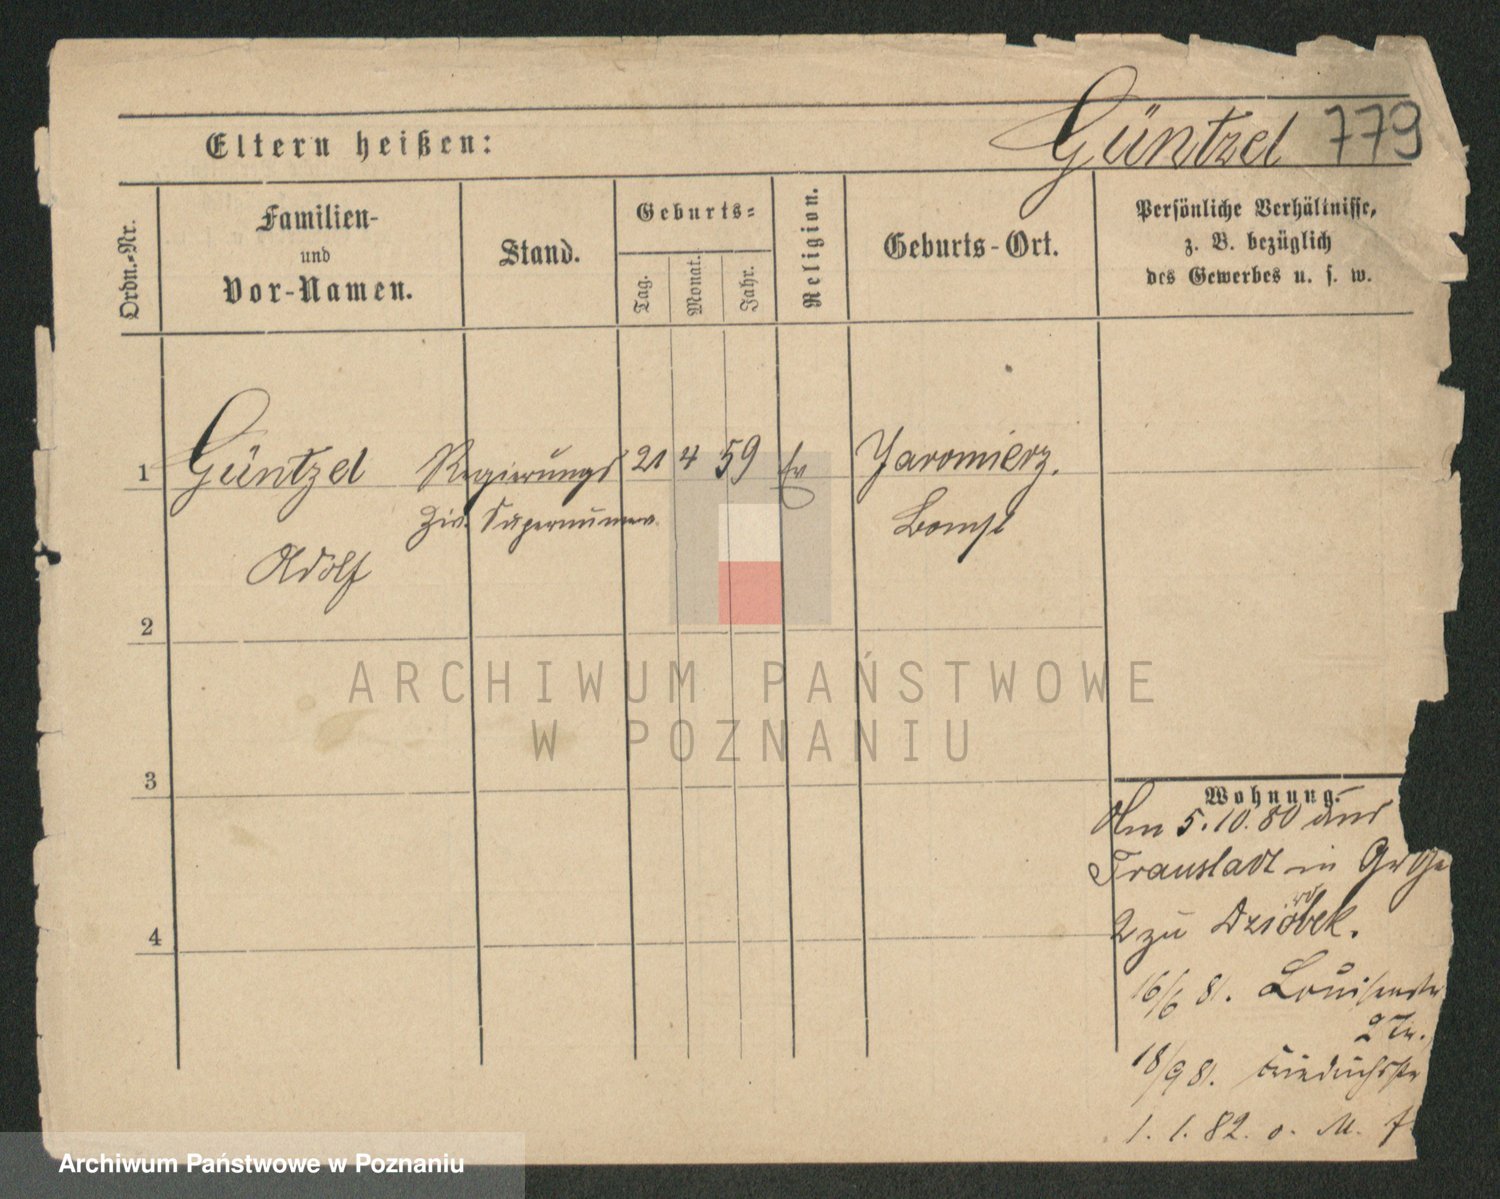 Eltern heißen:
Güntzel 779
Ordn.-Nr.
Familien-
und
Vor-Namen.
Stand.
Geburts-
Tag.
Monat.
Jahr.
Religion.
Geburts-Ort.
Persönliche Verhältnisse,
z. B. bezüglich
des Gewerbes u. s. w.
1 Güntzel Regierungs 21 4 59 Ev Jaromierz.
Ziv. Supernumer. Bomst
Adolf
2
3
4
Wohnung.
Am 5.10.80 aus
Fraustadt in Gr Ge
2 zu Dziobek.
16/6 81. Louisenstr
2 Tr.
18/9 81. Friedrichstr
1. 1. 82. o. M. f
ARCHIWUM PAŃSTWOWE
W POZNANIU
Archiwum Państwowe w Poznaniu